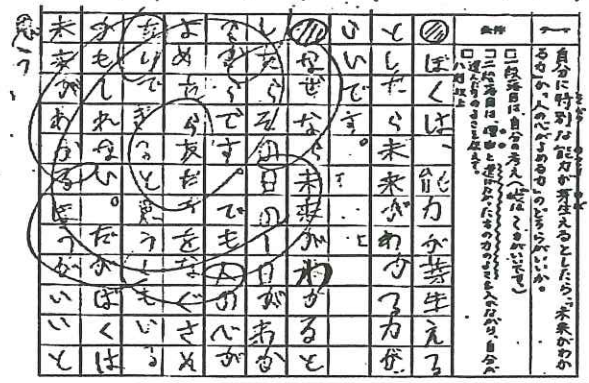 テーマ
自分に特別な能力が芽生えるとしたら、「未来がわか
る力」か、「人の心がよめる力」のどちらがいいか。
条件
□一段落目は、自分の考え
□二段落目は、理由と選ばなかった方の力のよさを入れながら、自分が
選んだ方のよさを伝える。
□八割以上
ぼくは、能力が芽生える
としたら、未来がわかる力が
いいです。
なぜなら、未来がわかると
したらその日の一日が
らです。でも人の心が
よめたらをなぐさめ
たりできると思うし
かもしれない。だがぼくは
未来があかるほうがいいと
思う